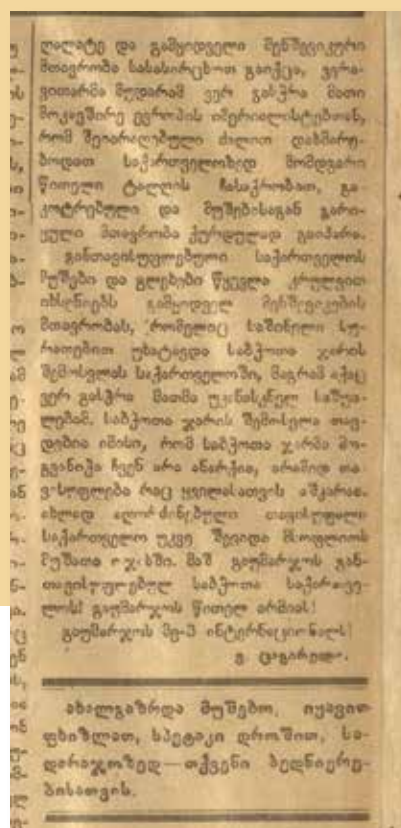 ღალატე და გამყიდველი მენშევიკური
მთავრობა სასაზიზღრო გაიქცა, ვერა-
ვითარმა მუდარამ ვერ გასჭრა მათი
მოკავშირე ევროპის იმერიალისტებთან,
რომ შეიარაღებული ძალით დახმარე-
ბოდათ საქართველოზედ მომდგარი
წითელი ტალღის ჩასაქრობათ, გა-
კოტრებული და მუშებისაგან გარი-
ყული მთავრობა ქურდულად გაიპარა.
განთავისუფლებული საქართველოს
მუშები და გლეხები წყევლა კრულვით
იხსენიებს გამყიდველ მენშევიკების
მთავრობას, რომელიც საშინელი სუ-
რათებით უხატავდა საბჭოთა ჯარის
შემოსვლას საქართველოში, მაგრამ აქაც
ვერ გასჭრა მათმა უკანასკნელ საშუა-
ლებამ. საბჭოთა ჯარის შემოსვლა თავ-
დებია იმისი, რომ საბჭოთა ჯარმა მო-
გვანიჭა ჩვენ არა ანარქია, არამედ თა-
ვისუფლება რაც ყველასათვის აშკარაა.
ახლად აღორძინებული თავისუფალი
საქართველო უკვე შევიდა მსოფლიოს
მუშათა ოჯახში. მაშ გაუმარჯოს გან-
თავისუფლებულ საბჭოთა საქართვე-
ლოს! გაუმარჯოს წითელ არმიას!
გაუმარჯოს მე-3 ინტერნაციონალს!
ახალგაზრდა მუშებო, იყავით
ფხიზლათ, სპეტაკი დროშით, სა-
დარაჯოზედ—თქვენი ბედნიერე-
ბისათვის.